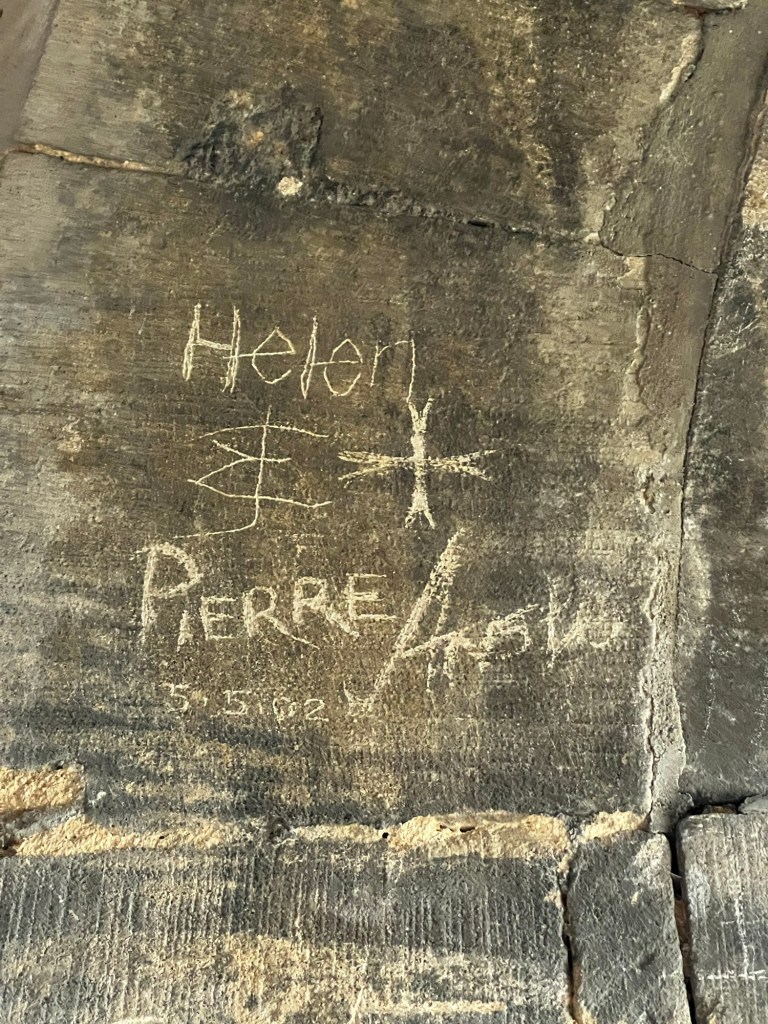 Helen
PIERRE
5.5.02